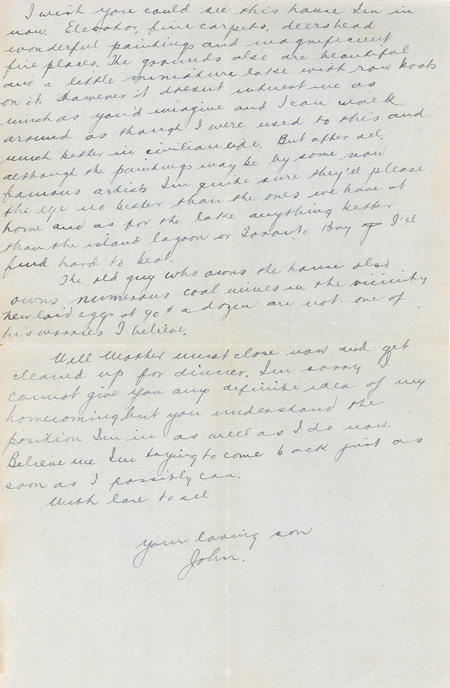 I wish you could see this house I'm in
now. Elevator, fine carpets, deershead
wonderful paintings and magnificent
fire places. The grounds also are beautiful
and a little miniature lake with row boats
on it. However it doesn't interest me as
much as you'd imagine and I can walk
around as though I were used to this and
much better in civilian life. But after all,
although the paintings may be by some now
famous artists I'm quite sure they'll please
the eye no better than the ones we have at
home and as for the lake anything better
than the island lagoon or Toronto Bay I'll
find hard to beat.
The old guy who owns the house also
owns numerous coal mines in the vicinity
new laid eggs at 90¢ a dozen are not one of
his worries I believe.
Well Mother must close now and get
cleaned up for dinner. I'm sorry I
cannot give you any definite idea of my
homecoming but you understand the
position I'm in as well as I do now.
Believe me I'm trying to come back just as
soon as I possibly can.
With love to all
your loving son
John.